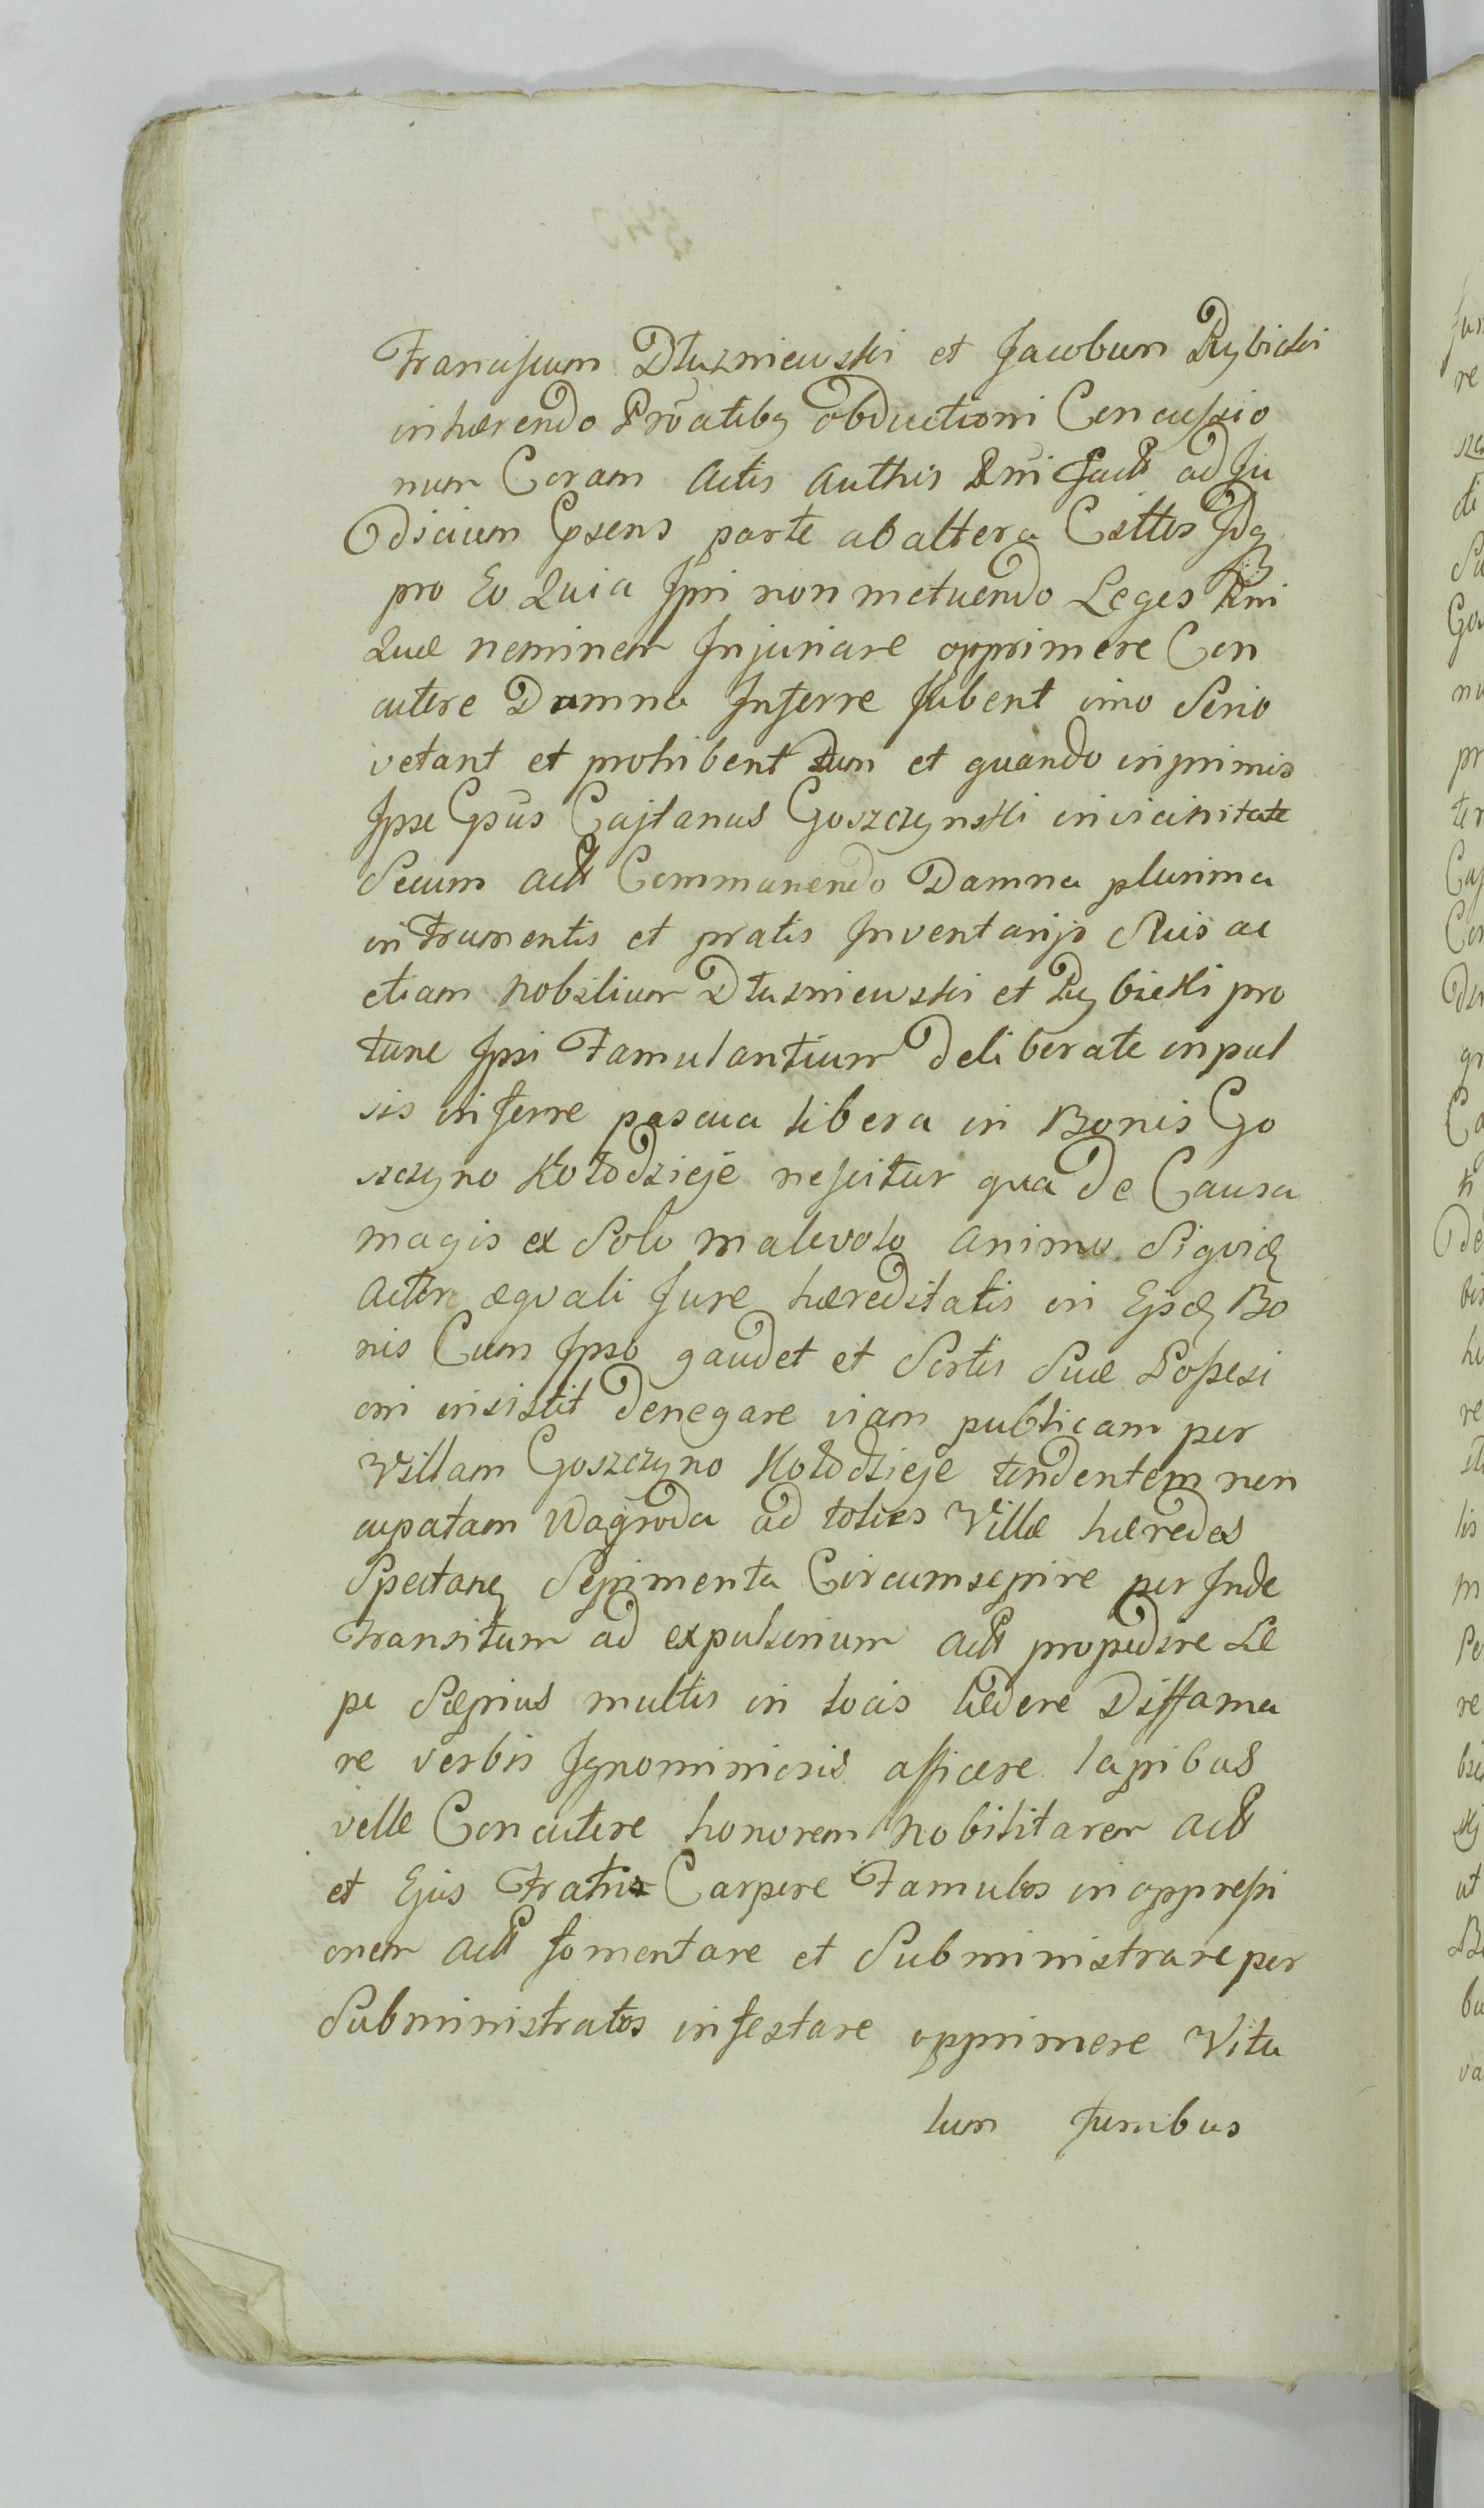 Franciscum Dłuzniewski et Jacobum Rybicki
inhærendo Prõatibq obductioni Concussio
num Coram Actis Authis Rni fact ad Ju
dicium Gpsens parte ab altera Cittos Idq
pro Eo Quia Ipsi non metuendo Leges Rni
Quæ neminem Injuriare opprimere Con
cutere Damna Inferre Jubent imo Serio
vetant et prohibent Dum et quando inprimis
Ipse Gsus Cajtanus Goszczynski in vicinitate
Secum act Commanendo Damna plurima
in Frumentis et pratis Inventarijs Suis ac
etiam Nobilium Dłuzniewski et Rybicki pro
tunc Ipsi Famulantium Deliberate in pul
sis inferre pascua libera in Bonis Go
szczyno Kołodzieje nescitur qua de Causa
magis ex Solo malevolo animo Siquid
Actor æquali Jure hæreditatis in Ejsd Bo
nis Cum Ipso gaudet et Sortis Suæ Possesi
oni insistit denegare viam publicam per
Villam Goszczyno Kołodzieje tendentem nun
cupatam Wagroda ad toties Villæ hæredes
Spectanq Sepimenta Circumsepire per Inde
Transitum ad expulsorium act propedire Sæ
pe Sæpius multis in locis lædere Diffama
re verbis Ignominiosis afficere lapibus
velle Concutere honorem Nobilitarem act
et Ejus Fratris Carpere Famulos in oppressi
onem act fomentare et Subministrare per
Subministratos infestare opprimere Vitu
lum funibus